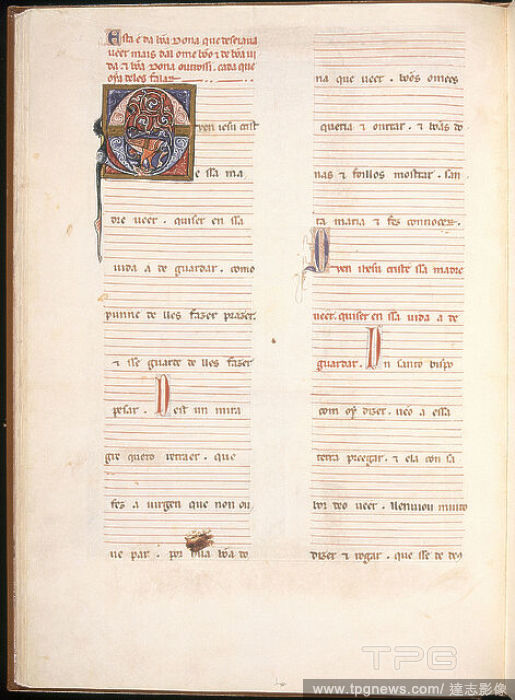 Esta é da bõa dona que deseiaua
ueer mais dal ome bõo τ de bõa ui
da τ bõa dona outrossi. cada que
oya deles falar
Qven iesu crist
e ssa ma
dre ueer. quiser en ssa
uida a de guardar. como
punne de lles fazer prazer.
τ sse guarde de lles fazer
pesar. Deit un mira
gre quero retraer. que
fez a uirgen que non ou
ue par. por hũa bõa do
na que ueer. bõos omees
queria τ onrrar. τ bõas do
nas τ foillos mostrar. san
ta maria τ fez connocer.
Qven ihesu criste ssa madre
ueer. quiser en ssa uida a de
guardar. Un santo bispo
com oy dizer. uẽo a essa
terra preegar. τ ela con sa
bor deo ueer. ll enuiou muito
dizer τ rogar. que sse de dey
TPG
www.tpgnews.com / 達志影像